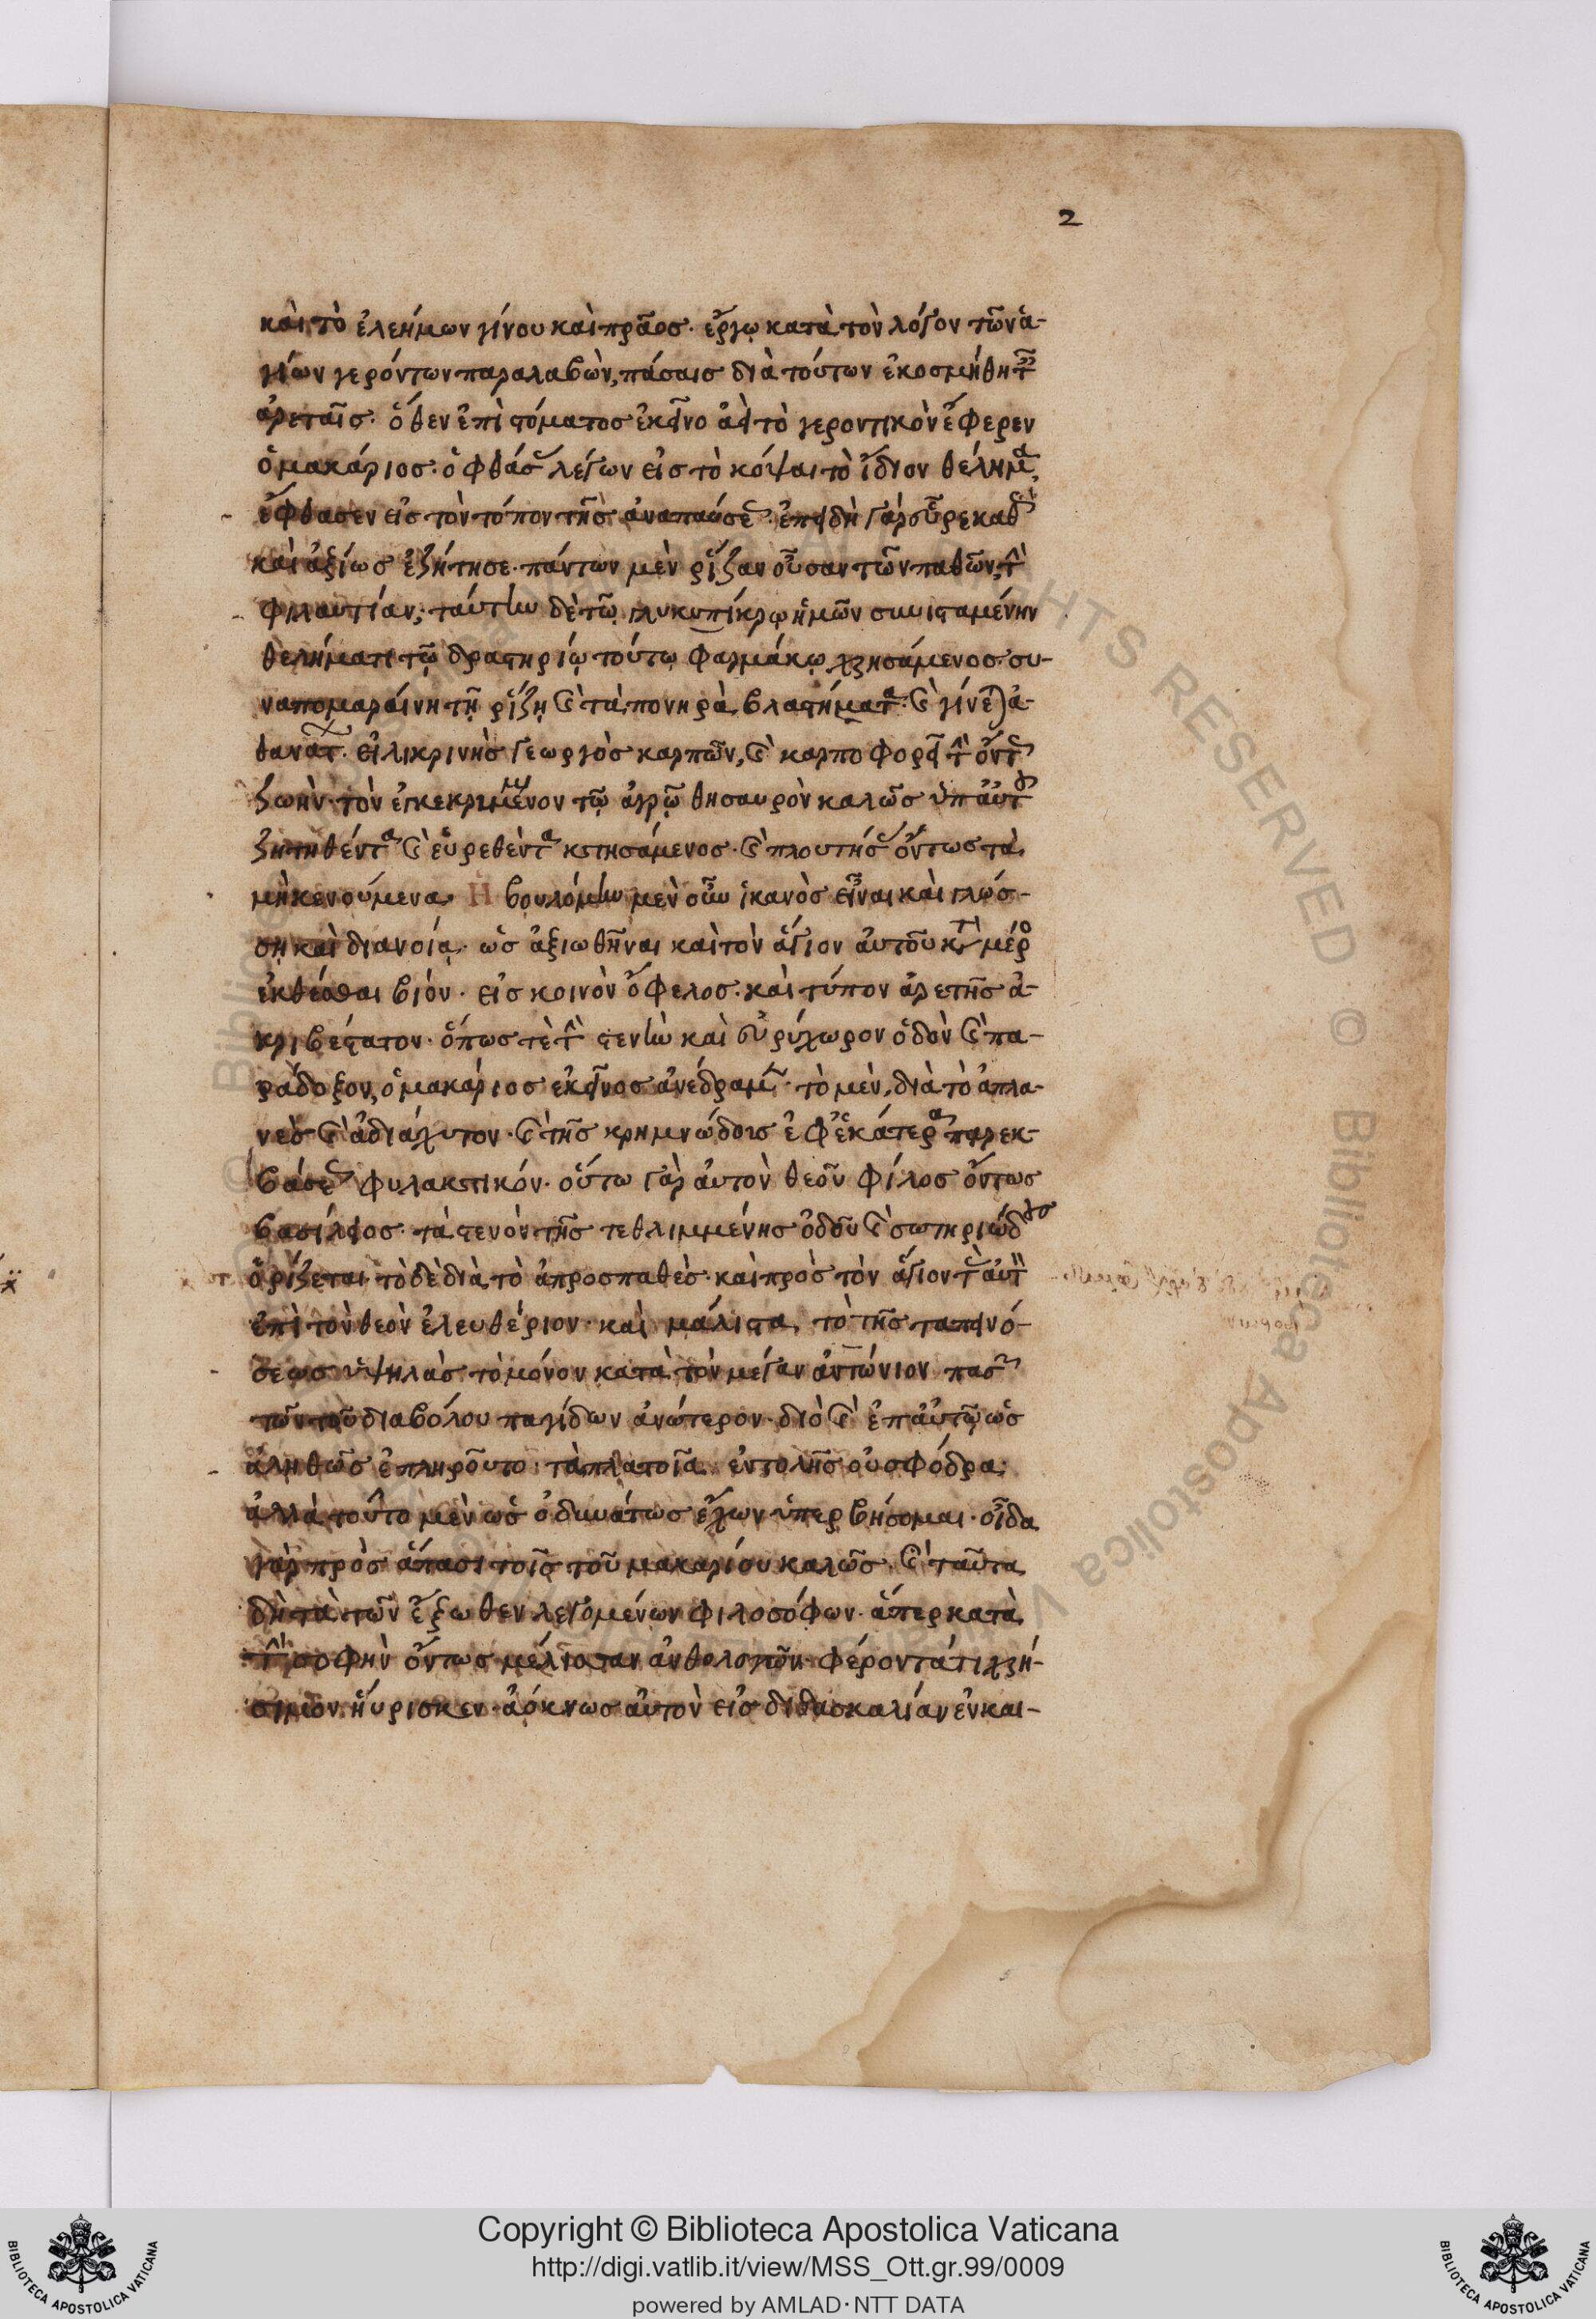 2
καὶ τὸ ἐλεήμων γίνου καὶ πρᾶος· ἔργω κατὰ τὸν λόγον τῶν ἁ-
γίων γερόντων παραλαβὼν, πάσαις διὰ τούτων ἐκοσμήθη τ
ἀρεταῖς· ὅθεν ἐπὶ στόματος ἐκεῖνο ἀεὶ τὸ γεροντικὸν ἔφερεν
ὁ μακάριος· ὁ φθάσ λέγων εἰς τὸ κόψαι τὸ ἴδιον θέλημα,
ἔφθασεν εἰς τὸν τόπον τῆς ἀναπαύσε· ἐπειδὴ γὰρ
καὶ ἀξίως ἐζήτησε· πάντων μὲν ῥίζαν οὖσαν τῶν παθῶν, τ
φιλαυτίαν, ταύτην δὲ τῷ γλυκυπίκρῳ ἡμῶν συνισταμένην
θελήματι τῷ δραστηρίῳ τούτῳ φαρμάκῳ χρησάμενος· συ-
ναπομαραίνη τῇ ῥίζῃ καὶ τὰ πονηρὰ βλαστήματα· καὶ γίνε ἀ-
θανάτ· εἰλικρινὴς γεωργὸς καρπῶν, καὶ καρποφορεῖ τ ὄντ
ζωὴν· τὸν ἐγκεκρυμμένον τῷ ἀγρῷ θησαυρὸν καλῶς ὑπ αὐτ
ζητηθέντα καὶ εὑρεθέντα κτησάμενος· καὶ πλουτήσ ὄντως τὰ
μὴ κενούμενα. Ἠβουλόμην μὲν οὖν ἱκανὸς εἶναι καὶ γλώσ-
σῃ καὶ διανοίᾳ· ὡς ἀξιωθῆναι καὶ τὸν ἅγιον αὐτοῦ κτ μέρο
ἐκθέσθαι βιόν· εἰς κοινὸν ὄφελος· καὶ τύπον ἀρετῆς ἀ-
κριβέστατον· ὅπως τὲ τ στενὴν καὶ εὐρύχωρον ὁδὸν καὶ πα-
ράδοξον, ὁ μακάριος ἐκεῖνος ἀνέδραμ· τὸ μὲν, διὰ τὸ ἀπλα-
νὲς καὶ ἀδιάχυτον· καὶ τῆς κρημνώδοις ἐφ ἑκάτερα παρεκ-
βάσε φυλακτικόν· οὕτω γὰρ αὐτὸν θεοῦ φίλος ὄντως
βασίλειος· τὰ στενὸν τῆς τεθλιμμένης ὁδοῦ καὶ σωτηριώδ
ὁρίζεται· τὸ δὲ διὰ τὸ ἀπροσπαθὲς· καὶ πρὸς τὸν ἅγιον
ἐπὶ τὸν θεὸν ἐλευθέριον· καὶ μάλιστα, τὸ τῆς ταπεινό-
σεως ὑψηλὰς· τὸ μόνον κατὰ τὸν μέγαν ἀντώνιον πασ
τῶν τοῦ διαβόλου παγίδων ἀνώτερον· διὸ καὶ ἐπ αὐτῷ ὡς
ἀληθῶς ἐπληροῦτο· τὰ πλατοῖα ἐντολῆς οὐ σφόδρα·
ἀλλὰ τοῦτο μὲν ὡς ὀδυνάτως ἔχων ὑπερβήσομαι· οἶδα
γὰρ πρὸς ἅπασι τοῖς τοῦ μακαρίου καλῶς· καὶ ταῦτα
δὴ τὰ τῶν ἔξωθεν λεγομένων φιλοσόφων· ἅπερ κατὰ
τ σοφὴν ὄντως μέλισσαν ἀνθολογῶν· φέροντά τι χρή-
σιμον ηὕρισκεν· ἀόκνως αὐτὸν εἰς διδασκαλίαν ἐν και-
Copyright © Biblioteca Apostolica Vaticana
http://digi.vatlib.it/view/MSS_Ott.gr.99/0009
powered by AMLAD · NTT DATA
BIBLIOTECA APOSTOLICA VATICANA
BIBLIOTECA APOSTOLICA VATICANA